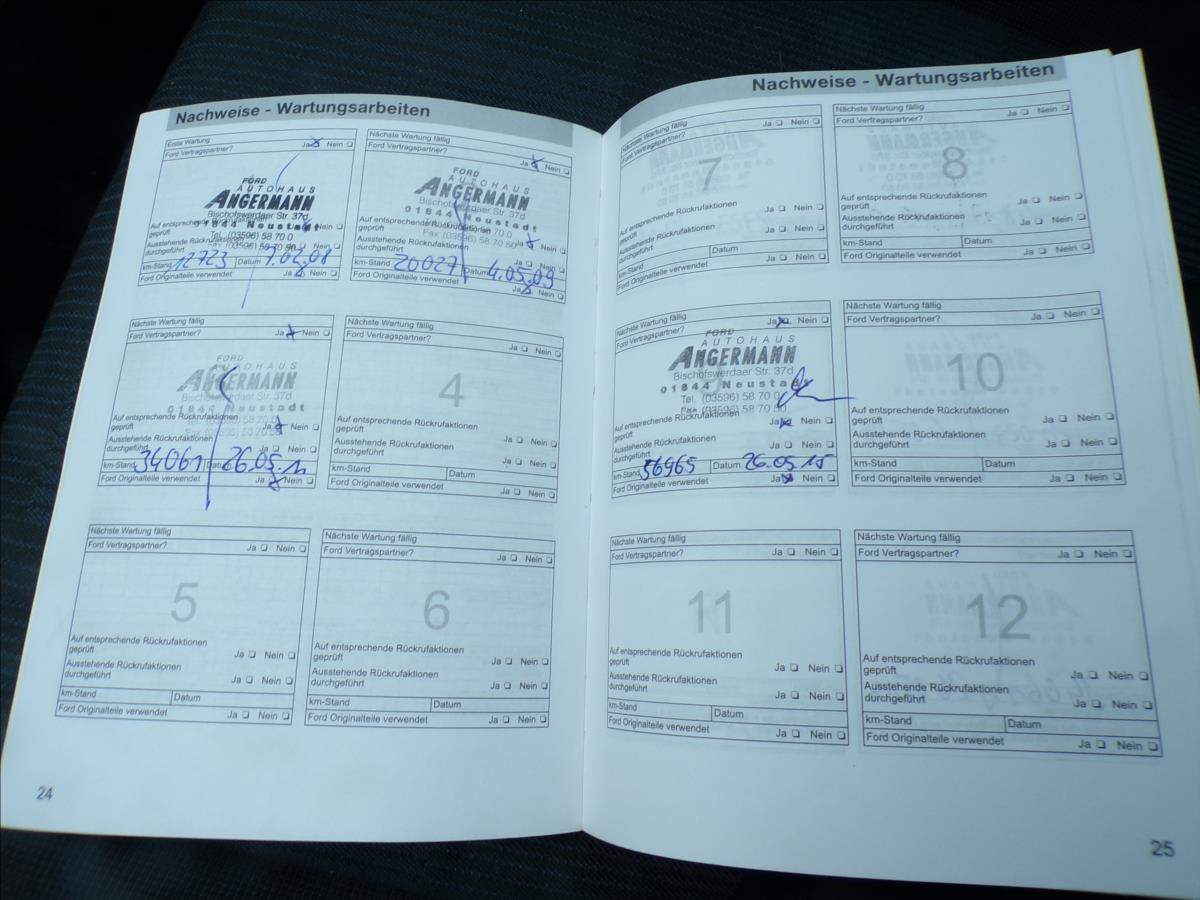 Nachweise - Wartungsarbeiten
Erste Wartung
Ford Vertragspartner? Ja Nein
FORD
AUTOHAUS
ANGERMANN
Bischofswerdaer Str. 37d
01844 Neustadt
Tel. (03596) 58 70 0
Fax (03596) 58 70 50
Auf entsprechende Rückrufaktionen
geprüft Ja Nein
Ausstehende Rückrufaktionen
durchgeführt Ja Nein
km-Stand 12723 Datum 7.02.08
Ford Originalteile verwendet Ja Nein
Nächste Wartung fällig
Ford Vertragspartner? Ja Nein
FORD
AUTOHAUS
ANGERMANN
Bischofswerdaer Str. 37d
01844 Neustadt
Tel. (03596) 58 70 0
Fax (03596) 58 70 50
Auf entsprechende Rückrufaktionen
geprüft Ja Nein
Ausstehende Rückrufaktionen
durchgeführt Ja Nein
km-Stand 20027 Datum 4.05.09
Ford Originalteile verwendet Ja Nein
Nächste Wartung fällig
Ford Vertragspartner? Ja Nein
FORD
AUTOHAUS
ANGERMANN
Bischofswerdaer Str. 37d
01844 Neustadt
Tel. (03596) 58 70 0
Fax (03596) 58 70 50
Auf entsprechende Rückrufaktionen
geprüft Ja Nein
Ausstehende Rückrufaktionen
durchgeführt Ja Nein
km-Stand 34061 Datum 26.05.11
Ford Originalteile verwendet Ja Nein
Nächste Wartung fällig
Ford Vertragspartner? Ja Nein
4
Auf entsprechende Rückrufaktionen
geprüft Ja Nein
Ausstehende Rückrufaktionen
durchgeführt Ja Nein
km-Stand Datum
Ford Originalteile verwendet Ja Nein
Nächste Wartung fällig
Ford Vertragspartner? Ja Nein
5
Auf entsprechende Rückrufaktionen
geprüft Ja Nein
Ausstehende Rückrufaktionen
durchgeführt Ja Nein
km-Stand Datum
Ford Originalteile verwendet Ja Nein
Nächste Wartung fällig
Ford Vertragspartner? Ja Nein
6
Auf entsprechende Rückrufaktionen
geprüft Ja Nein
Ausstehende Rückrufaktionen
durchgeführt Ja Nein
km-Stand Datum
Ford Originalteile verwendet Ja Nein
24
Nachweise - Wartungsarbeiten
Nächste Wartung fällig
Ford Vertragspartner? Ja Nein
7
Auf entsprechende Rückrufaktionen
geprüft Ja Nein
Ausstehende Rückrufaktionen
durchgeführt Ja Nein
km-Stand Datum
Ford Originalteile verwendet Ja Nein
Nächste Wartung fällig
Ford Vertragspartner? Ja Nein
8
Auf entsprechende Rückrufaktionen
geprüft Ja Nein
Ausstehende Rückrufaktionen
durchgeführt Ja Nein
km-Stand Datum
Ford Originalteile verwendet Ja Nein
Nächste Wartung fällig
Ford Vertragspartner? Ja Nein
FORD
AUTOHAUS
ANGERMANN
Bischofswerdaer Str. 37d
01844 Neustadt
Tel. (03596) 58 70 0
Fax (03596) 58 70 50
Auf entsprechende Rückrufaktionen
geprüft Ja Nein
Ausstehende Rückrufaktionen
durchgeführt Ja Nein
km-Stand 56965 Datum 26.05.15
Ford Originalteile verwendet Ja Nein
Nächste Wartung fällig
Ford Vertragspartner? Ja Nein
10
Auf entsprechende Rückrufaktionen
geprüft Ja Nein
Ausstehende Rückrufaktionen
durchgeführt Ja Nein
km-Stand Datum
Ford Originalteile verwendet Ja Nein
Nächste Wartung fällig
Ford Vertragspartner? Ja Nein
11
Auf entsprechende Rückrufaktionen
geprüft Ja Nein
Ausstehende Rückrufaktionen
durchgeführt Ja Nein
km-Stand Datum
Ford Originalteile verwendet Ja Nein
Nächste Wartung fällig
Ford Vertragspartner? Ja Nein
12
Auf entsprechende Rückrufaktionen
geprüft Ja Nein
Ausstehende Rückrufaktionen
durchgeführt Ja Nein
km-Stand Datum
Ford Originalteile verwendet Ja Nein
25